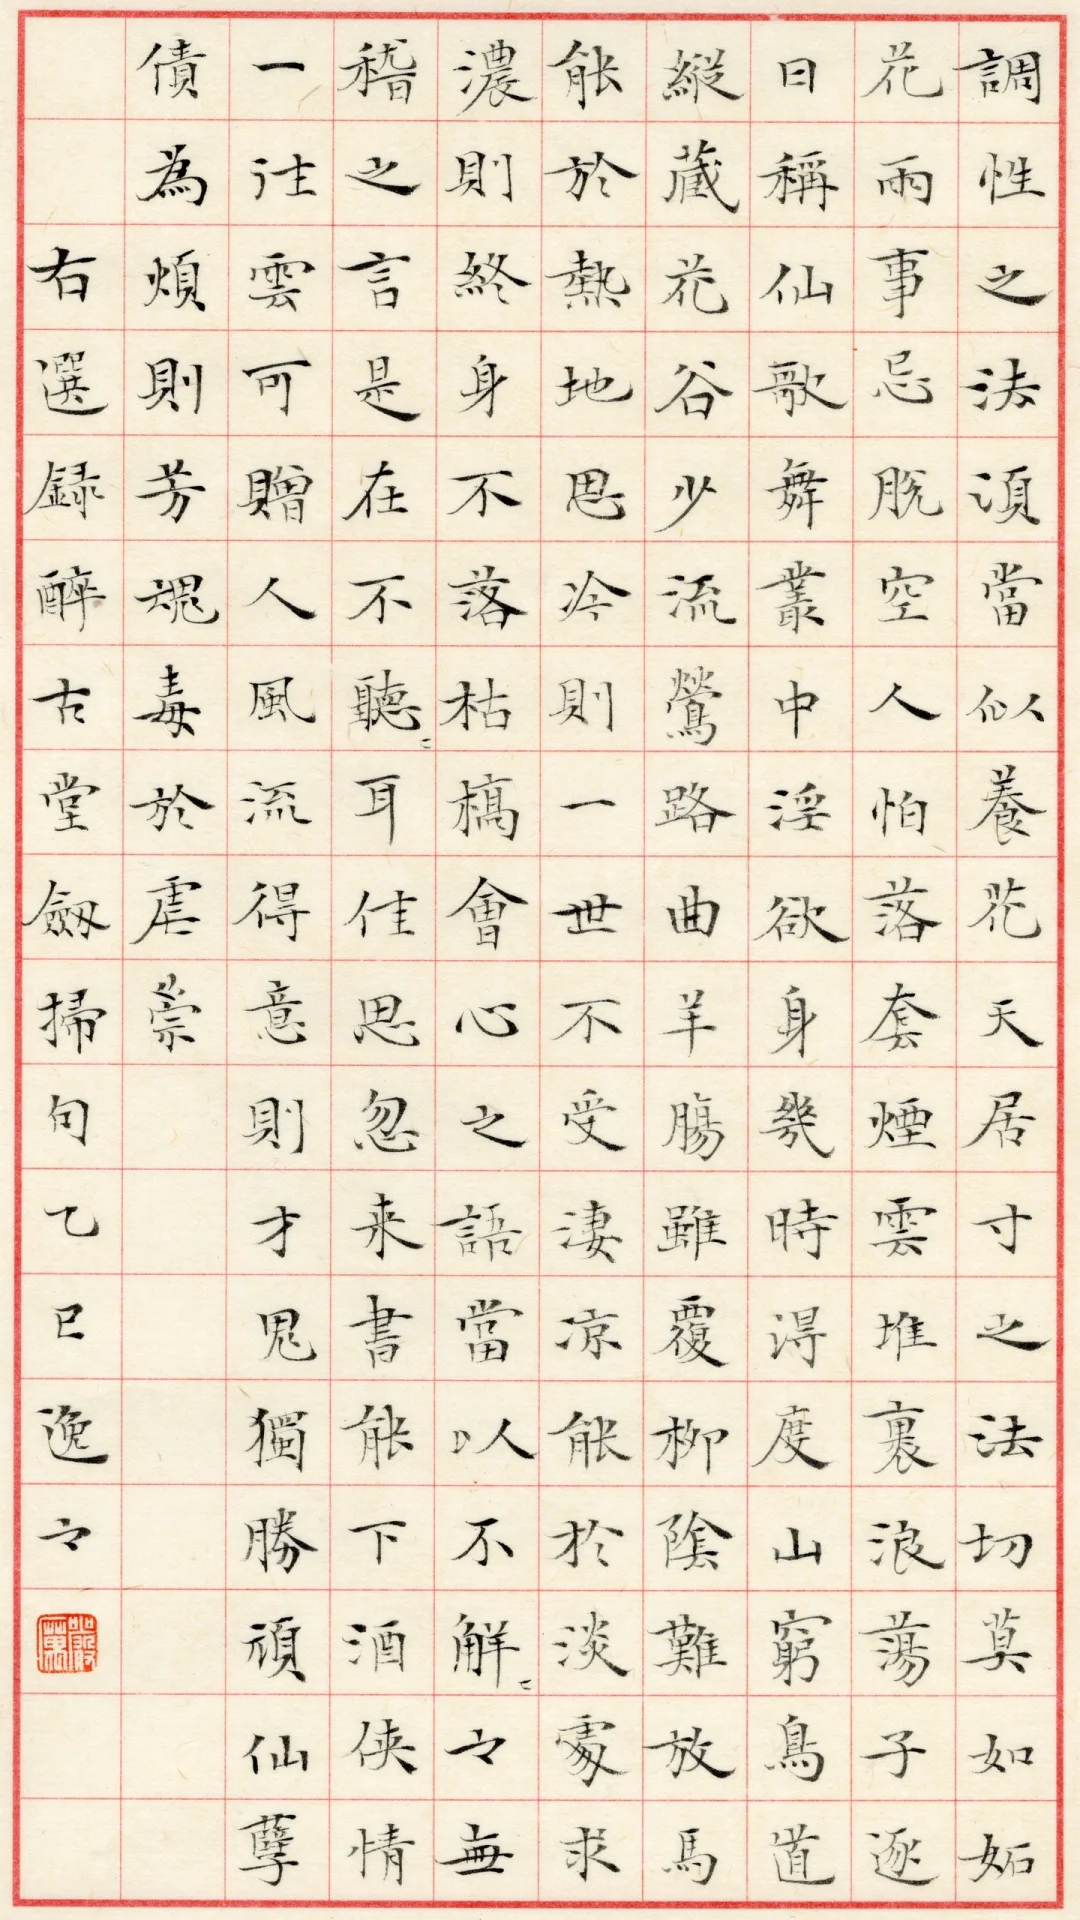 調性之法湏當似養花天居寸之法切莫如妬
花雨事忌脫空人怕落套煙雲堆裏浪蕩子逐
日稱仙歌舞叢中淫欲身幾時得度山窮鳥道
縱藏花谷少流鶯路曲羊腸雖覆柳陰難放馬
能於熱地思冷則一世不受淒凉能於淡處求
濃則終身不落枯槁會心之語當以不解〻之無
稽之言是在不聽〻耳佳思忽来書能下酒侠情
一往雲可贈人風流得意則才鬼獨勝頑仙孽
債為煩則芳魂毒於虐祟
右選録醉古堂劔掃句乙巳逸之